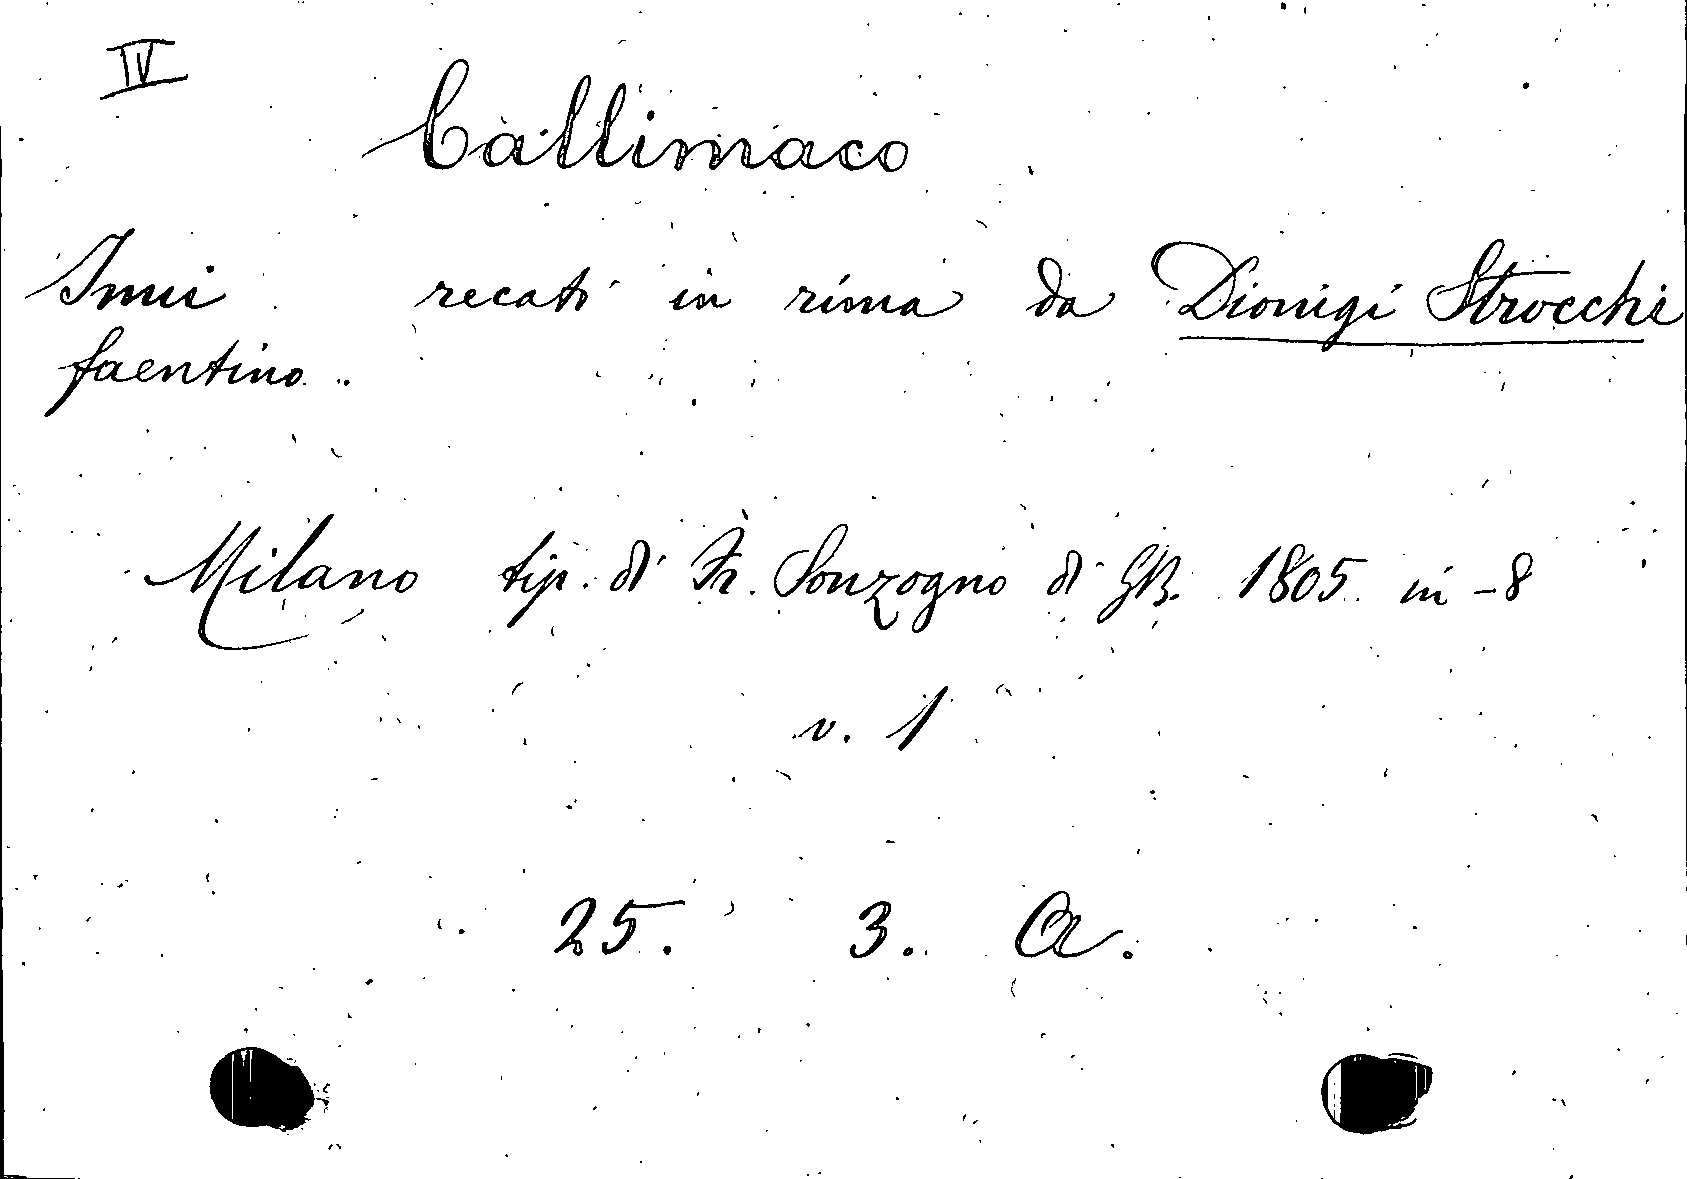 IV
Callimaco
Inni recati in rima da Dionigi Strocchi
faentino.
Milano tip. di Fr. Sonzogno di GB. 1805 in-8
v. 1
25. 3. A.